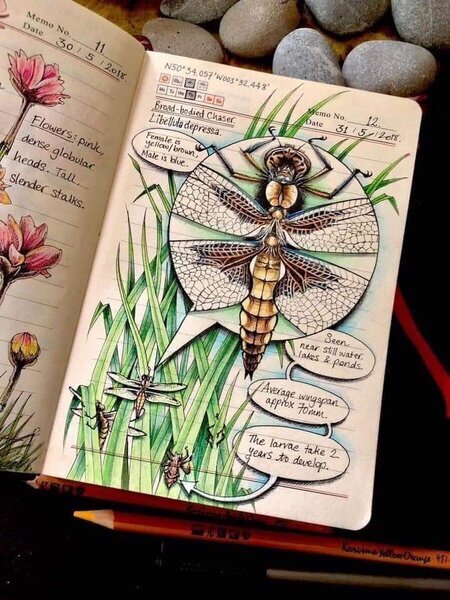 Memo No. 11
Date 30/5/2018.
Flowers: pink,
dense globular
heads. Tall
slender stalks.
N50°34.057'W003°32.448'
Memo No. 12
Date 31/5/2018.
Broad-bodied Chaser.
Libellula depressa.
Female is
yellow/brown.
Male is blue.
Seen
near still water.
lakes & ponds.
Average wingspan
approx 70mm.
The larvae take 2
years to develop.
Karisma Yellow Orange 917